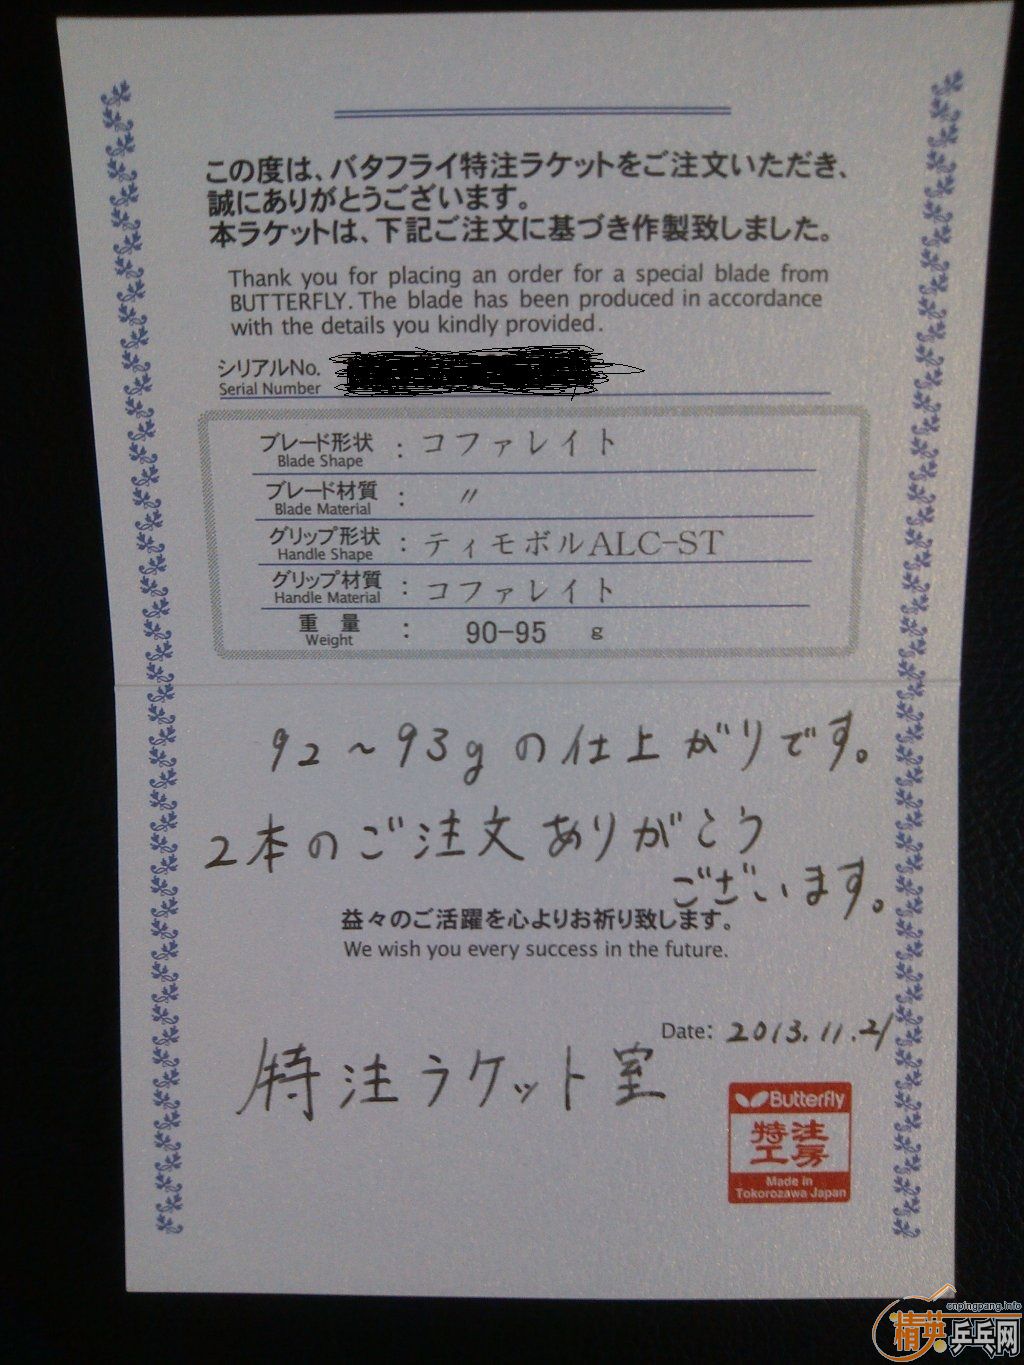 この度は、バタフライ特注ラケットをご注文いただき、
誠にありがとうございます。
本ラケットは、下記ご注文に基づき作製致しました。
Thank you for placing an order for a special blade from
BUTTERFLY. The blade has been produced in accordance
with the details you kindly provided.
シリアルNo.
Serial Number
ブレード形状 : コファレイト
Blade Shape
ブレード材質 : 〃
Blade Material
グリップ形状 : ティモボルALC-ST
Handle Shape
グリップ材質 : コファレイト
Handle Material
重量 : 90-95 g
Weight
92~93gの仕上がりです。
2本のご注文ありがとう
ございます。
益々のご活躍を心よりお祈り致します。
We wish you every success in the future.
Date: 2013.11.21
特注ラケット室
Butterfly
特注
工房
Made in
Tokorozawa Japan
cnpingpang.info
精英乒乓网